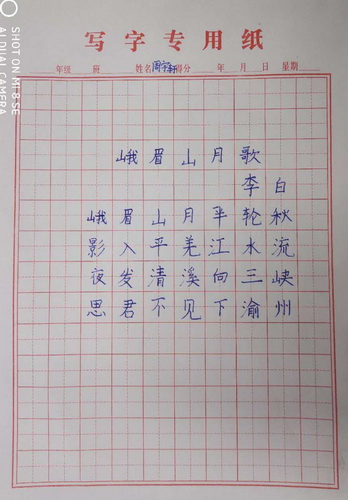 写字专用纸
年级 班 姓名 得分 年 月 日 星期
峨眉山月歌
李白
峨眉山月半轮秋
影入平羌江水流
夜发清溪向三峡
思君不见下渝州
SHOT ON MI 8 SE
AI DUAL CAMERA